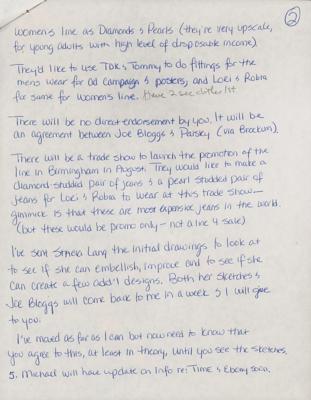 2
women's line as Diamonds & Pearls (they're very upscale,
for young adults with high level of disposable income)
They'd like to use TDK & Tommy to do fittings for the
mens wear for ad campaign & posters, and Lori & Robia
for same for women's line. Have 2 see clothes 1st
There will be no direct endorsement by you. It will be
an agreement between Joe Bloggs & Paisley (via Brockum).
There will be a trade show to launch the promotion of the
line in Birmingham in August. They would like to make a
diamond-studded pair of jeans & a pearl studded pair of
jeans for Lori & Robia to wear at this trade show—
gimmick is that these are most expensive jeans in the world.
(but these would be promo only - not a line 4 sale)
I've sent Lang the initial drawings to look at
to see if she can embellish, improve and to see if she
can create a few add'l designs. Both her sketches &
Joe Bloggs will come back to me in a week & I will give
to you.
I've moved as far as I can but now need to know that
you agree to this, at least in theory, until you see the sketches.
5. Michael will have update on info re: Time & Ebony soon.